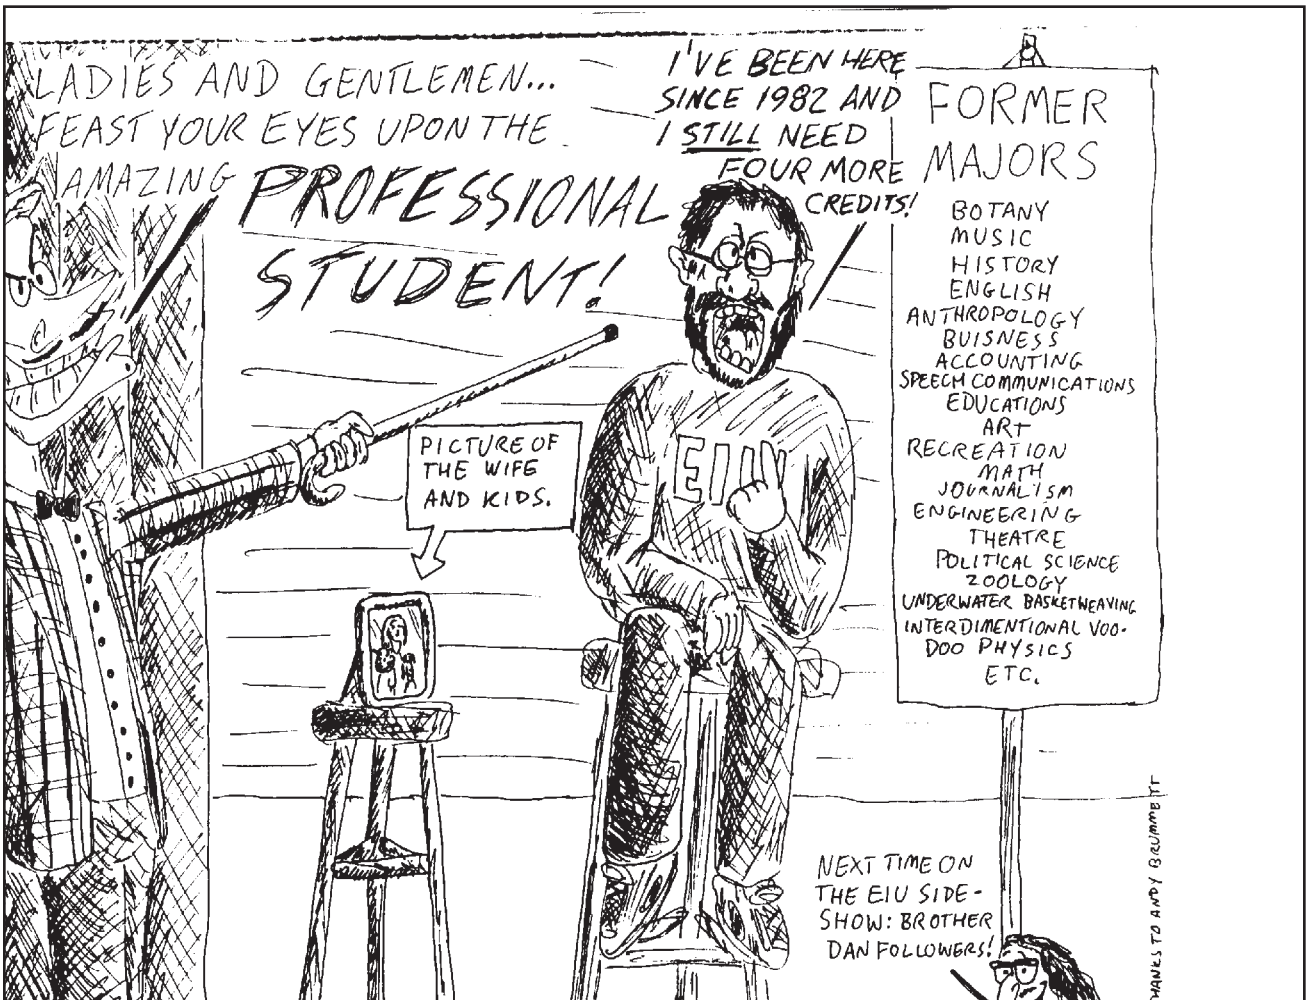 LADIES AND GENTLEMEN...
FEAST YOUR EYES UPON THE
AMAZING PROFESSIONAL
STUDENT!
I'VE BEEN HERE
SINCE 1982 AND
I STILL NEED
FOUR MORE
CREDITS!
FORMER
MAJORS
BOTANY
MUSIC
HISTORY
ENGLISH
ANTHROPOLOGY
BUISNESS
ACCOUNTING
SPEECH COMMUNICATIONS
EDUCATIONS
ART
RECREATION
MATH
JOURNALISM
ENGINEERING
THEATRE
POLITICAL SCIENCE
ZOOLOGY
UNDERWATER BASKETWEAVING
INTERDIMENTIONAL VOO-
DOO PHYSICS
ETC.
PICTURE OF
THE WIFE
AND KIDS.
EIU
NEXT TIME ON
THE EIU SIDE-
SHOW: BROTHER
DAN FOLLOWERS!
HANKS TO ANDY BRUMMETT